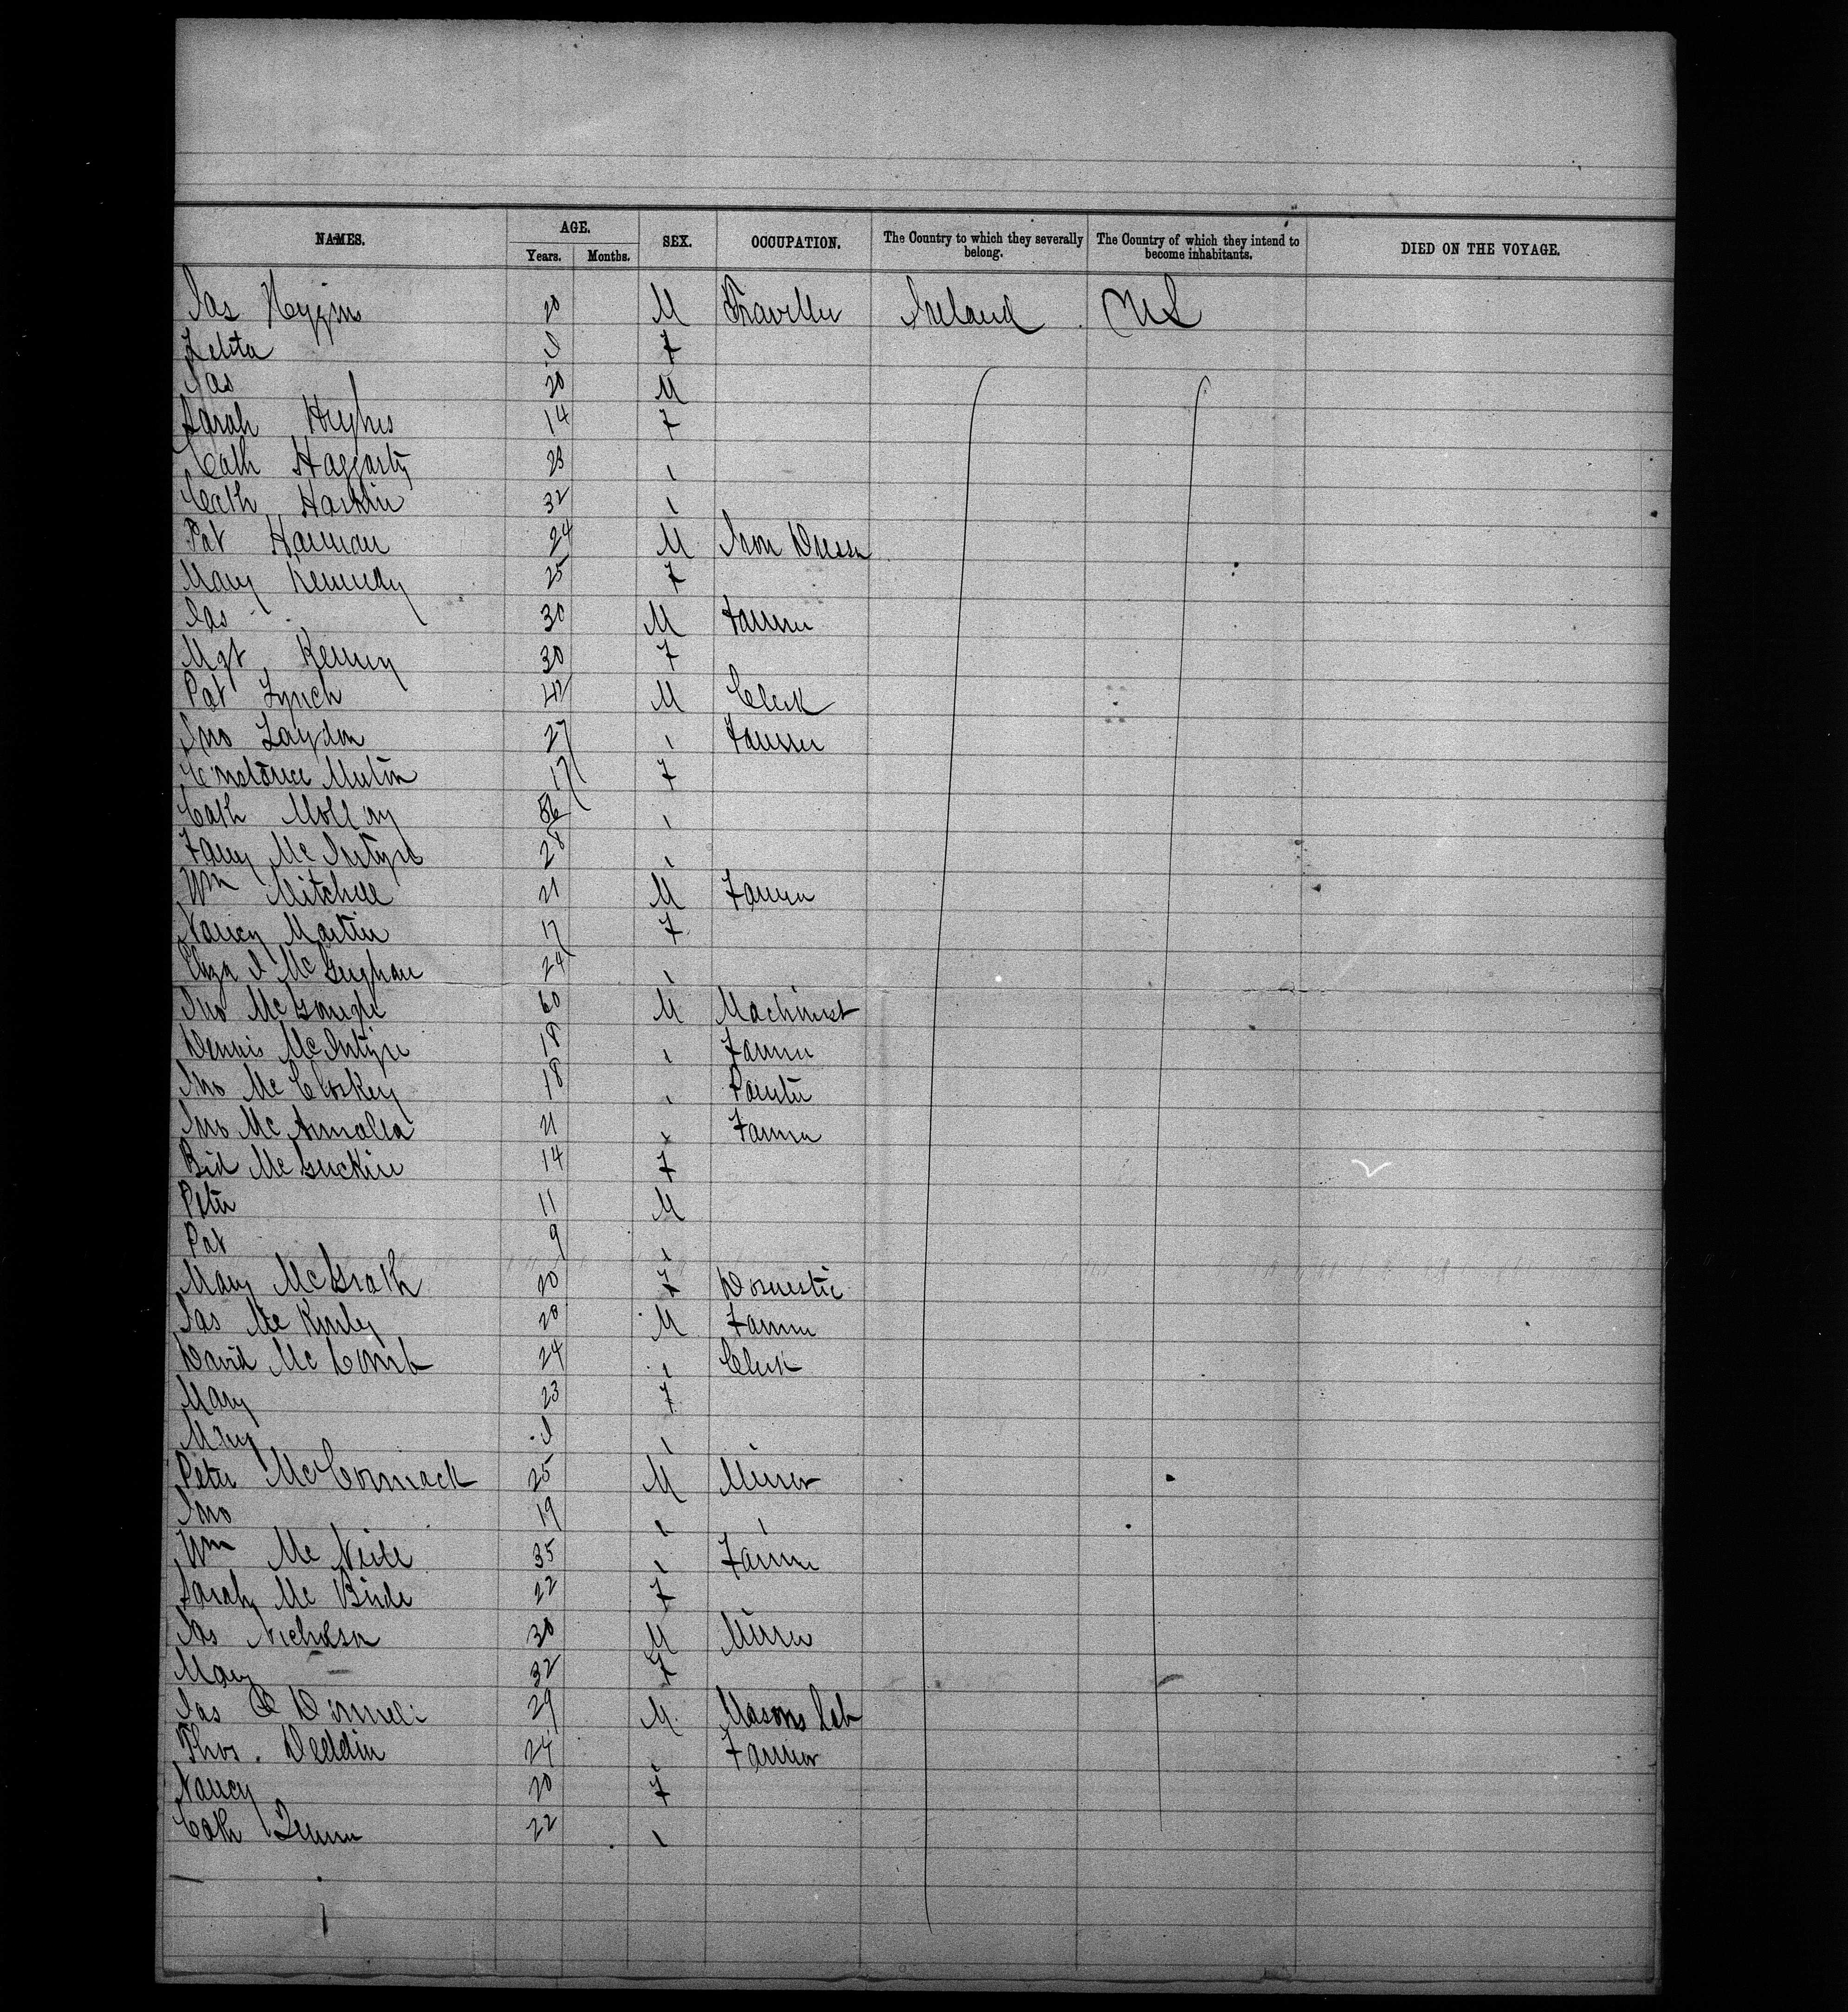 NAMES. AGE. SEX. OCCUPATION. The Country to which they severally belong. The Country of which they intend to become inhabitants. DIED ON THE VOYAGE.
Years. Months.
Jas Higgins 20 M Traveller Ireland US
F
Jas 20 M
Sarah Hughes 14 F
Cath Haggarty 23 "
Cath Harkin 32 "
Pat Hannan 24 M Iron Dresser
Mary Kennedy 25 F
Jas " 30 M Farmer
Mgt Kenny 30 F
Pat Lynch M Clerk
Jno Laydon 27 " Farmer
Constance 17 F
Cath Molloy "
Fanny McIntyre 28 "
Wm Mitchell 21 M Farmer
Nancy Martin 17 F
Eliza J McGughan 24 "
Jno McGonigle 60 M Machinist
Dennis McIntyre 18 " Farmer
Jno McCloskey 18 " Painter
Jno McAnnalla 21 " Farmer
Bid McGuckin 14 F
Peter 11 M
Pat 9 "
Mary McGrath 20 F Domestic
Jas McKinley 20 M Farmer
David McComb 24 " Clerk
Mary 23 F
Mary "
Peter McCormack 25 M Miner
Jno 19 " "
Wm McNeill 35 " Farmer
Sarah McBride 22 F
Jas Nicholson 30 M Miner
Mary " 32 F
Jas O Donnell 29 M Masons Lab
Thos. Deddin 24 " Farmer
Nancy 20 F
Cath Quinn 22 "